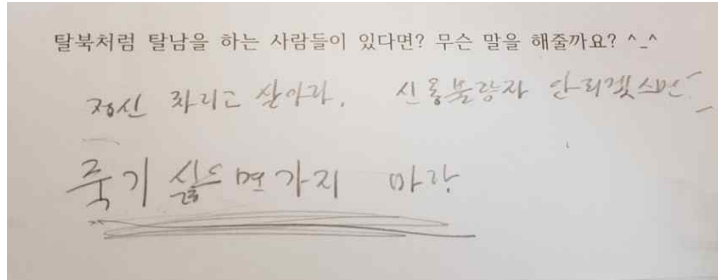 탈북처럼 탈남을 하는 사람들이 있다면? 무슨 말을 해줄까요? ^_^
정신 차리고 살아라. 신용불량자 안되겠으면
죽기 싫으면 가지 마라